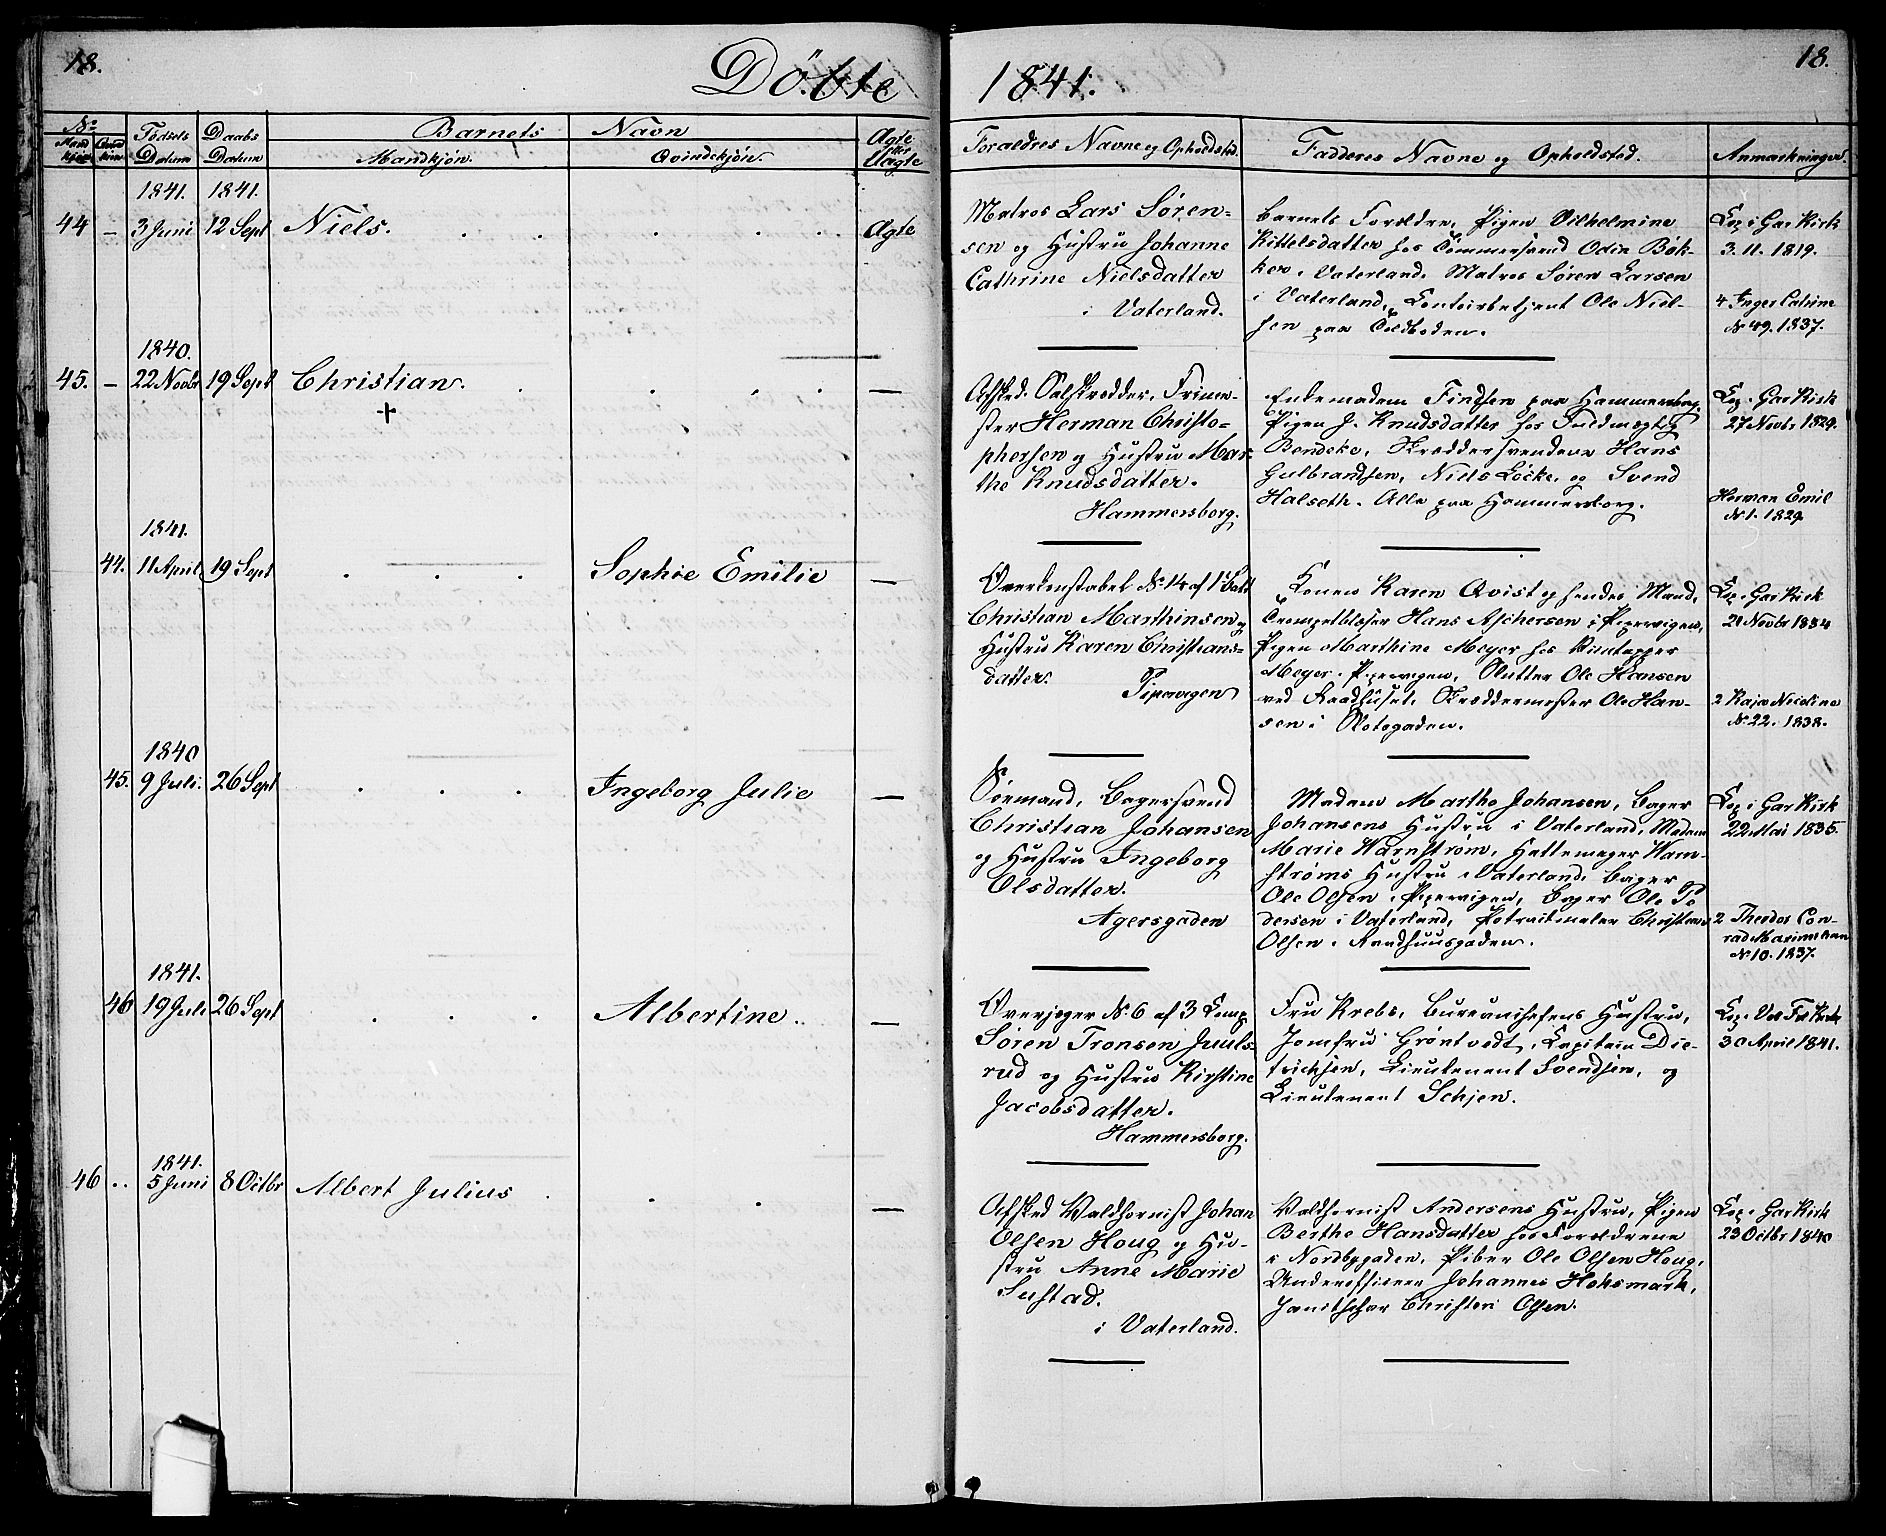 18.
Døbte
1841.
18.
No
Mandkjön
Qvindekjön
Födsels Datum
Daabs Datum
Barnets Navn
Mandkjøn.
Qvindekjön.
Ægte eller Uægte
Foraldres Navne og Opholdsted.
Fadderes Navne og Opholdsted.
Anmærkninger.
1841. 1841.
44 – 3 Juni 12 Sept Niels. Ægte
Matros Lars Sören-
sen og Hustru Johanne
Cathrine Nielsdatter
i Vaterland.
Barnets Forældre, Pigen Vilhelmine
Kittelsdatter hos Tömmersvend Odin Bök-
ker i Vaterland, Matros Sören Larsen
i Vaterland, Contoirbetjent Ole Niel-
sen paa Toldboden.
Cop. i Gar Kirk
3.11.1819.
4 Inger Catrine
No 49. 1837.
1840.
45. – 22 Novbr 19 Sept Christian. —
+
Afsked. Soelskrædder, Frime-
ster Herman Christo-
phersen og Hustru Mar-
the Knudsdatter.
Hammersborg.
Enkemadam Findsen paa Hammersborg,
Pigen J. Knudsdatter hos Fuldmægtig
Bendeke, Skræddersvendene Hans
Gulbrandsen, Niels Löcke, og Svend
Halseth. Alle paa Hammersborg.
Cop. i Gar Kirk
27 Novbr 1829.
Herman Emil
No 1. 1829.
1841.
44. 11 April 19 Sept Sophie Emilie —
Overkonstabel No 14 af 1 Batt
Christian Marthinsen og
Hustru Karen Christians-
datter.
Pipervigen
Konen Karen Qvist og hendes Mand,
Trompetblæser Hans Aschersen i Pipervigen,
Pigen Marthine Meyer hos Viintapper
Meyer i Pipervigen, Slutter Ole Hansen
ved Raadhuset, Skræddermester Ole Han-
sen i Slotsgaden.
Cop. i Gar Kirk
21 Novbr 1834
2 Kaja Nicoline
No 22. 1838.
1840
45. 9 Juli. 26 Sept Ingeborg Julie —
Sömand, Bagersvend
Christian Johansen
og Hustru Ingeborg
Olsdatter.
Agersgaden
Madam Marthe Johansen, Bager
Johansens Hustru i Vaterland, Madam
Marie Warnström, Hattemager Warn-
ströms Hustru i Vaterland, Bager
Ole Olsen i Pipervigen, Bager Ole Pe-
dersen i Vaterland, Potraitmaler Christian
Olsen i Raadhuusgaden.
Cop. i Gar Kirk
22 Mai 1835.
2 Theodor Con-
rad
No 10. 1837.
1841.
46 19 Juli 26 Sept Albertine. —
Overjæger No 6 af 3 Comp
Sören Tronsen Juuls-
rud og Hustru Kirstine
Jacobsdatter.
Hammersborg.
Fru Krebs, Bureauchefens Hustru,
Jomfru Gröntvedt, Capitain Die-
trichsen, Lieutenant Svendsen, og
Lieutenant Schjen.
Cop. Vor Fr Kirke
30 April 1841.
1841.
46 .. 5 Juni 8 Octbr Albert Julius —
Afsked Valdhornist Johan
Olsen Houg og Hu-
stru Anne Marie
Sustad.
i Vaterland.
Valdhornist Andersens Hustru, Pigen
Berthe Hansdatter hos Forældrene
i Nordbygaden, Piber Ole Olsen Houg,
Underofficeer Johannes Hoksmark,
Janitschar Christen Olsen.
Cop. i Gar Kirk
23 Octbr 1840